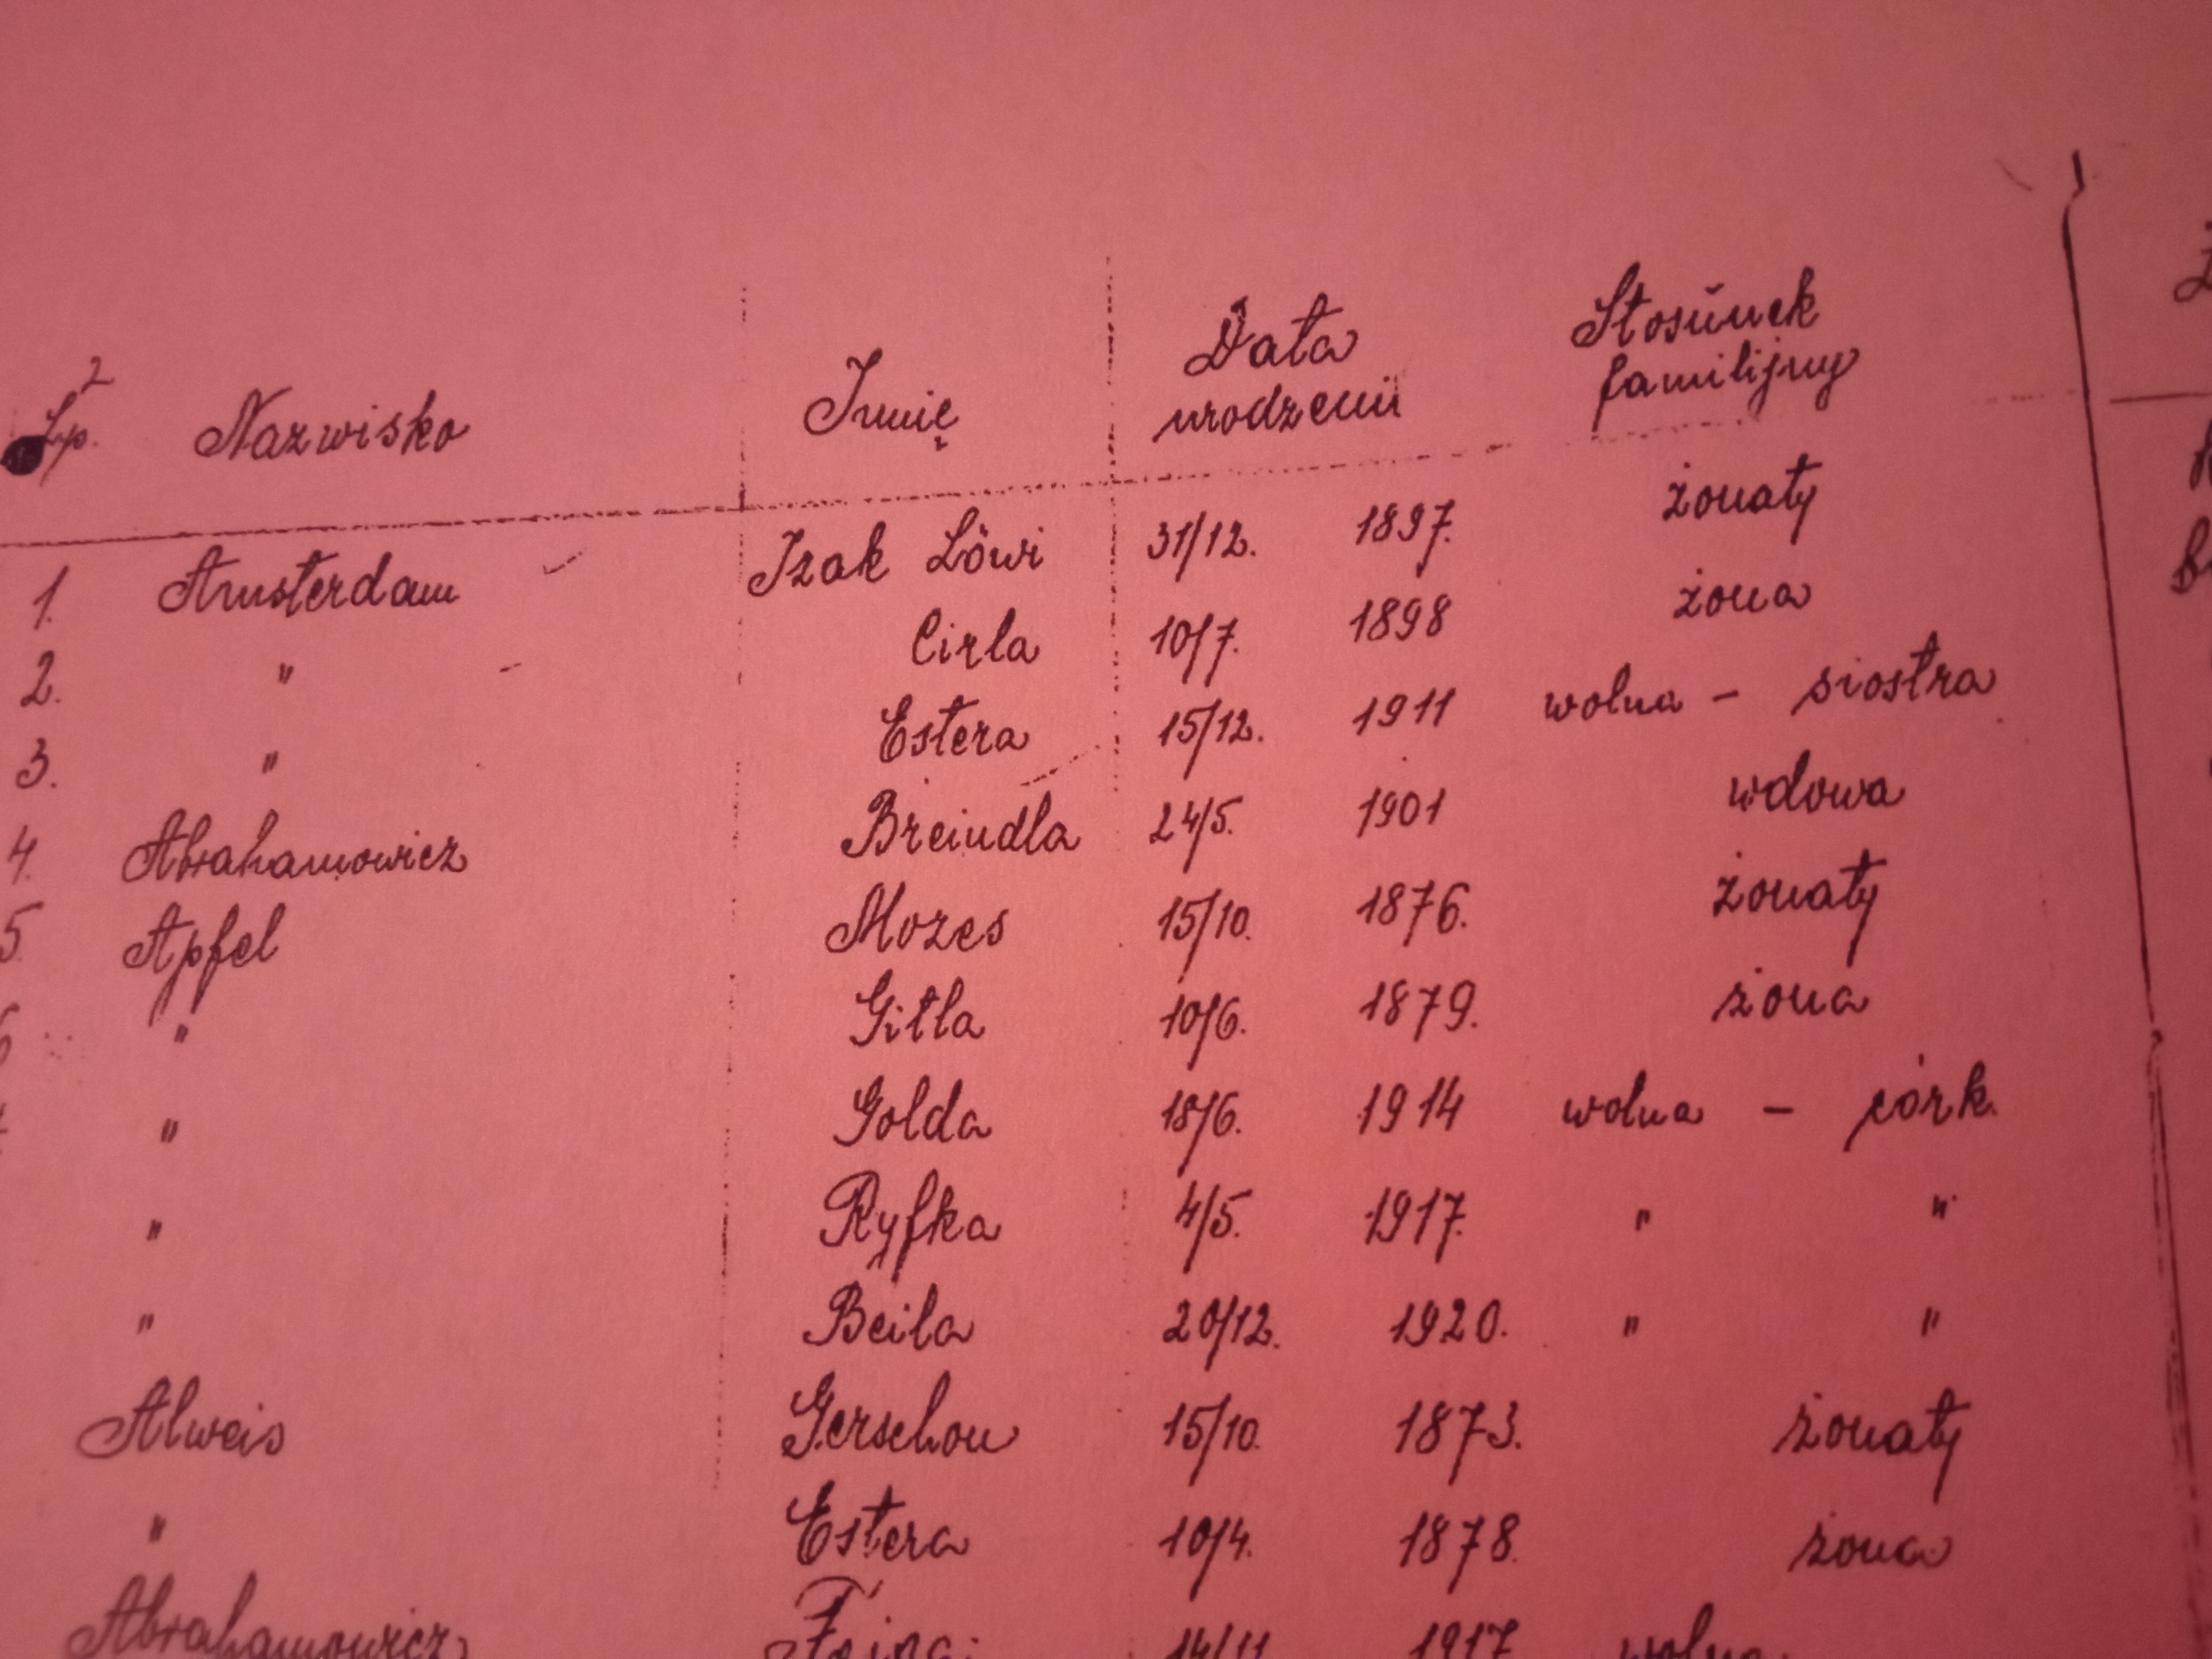 2
Lp. Nazwisko Imię Data urodzenia Stosunek familijny
1. Amsterdam Izak Löwi 31/12. 1897. żonaty
2. " Cirla 10/7. 1898 żona
3. " Estera 15/12. 1911 wolna - siostra
4. Abrahamowicz Breindla 24/5. 1901 wdowa
5. Apfel Mozes 15/10. 1876. żonaty
6 " Gitla 10/6. 1879. żona
" Golda 18/6. 1914 wolna - córk.
" Ryfka 4/5. 1917. " "
" Beila 20/12. 1920. " "
Alweis Gerschon 15/10. 1873. żonaty
" Estera 10/4. 1878. żona
Abrahamowicz 14/11 1917 wolna